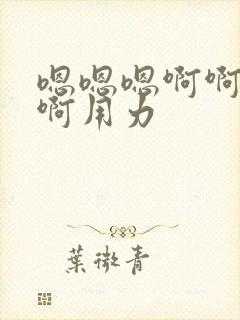 嗯嗯嗯啊啊
啊用力
葉微青